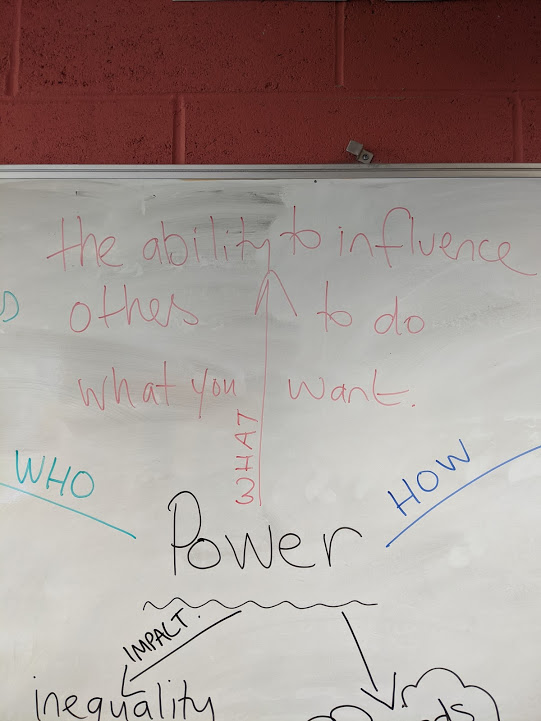 the ability to influence
others to do
what you want.
WHAT
WHO
HOW
Power
IMPACT.
inequality